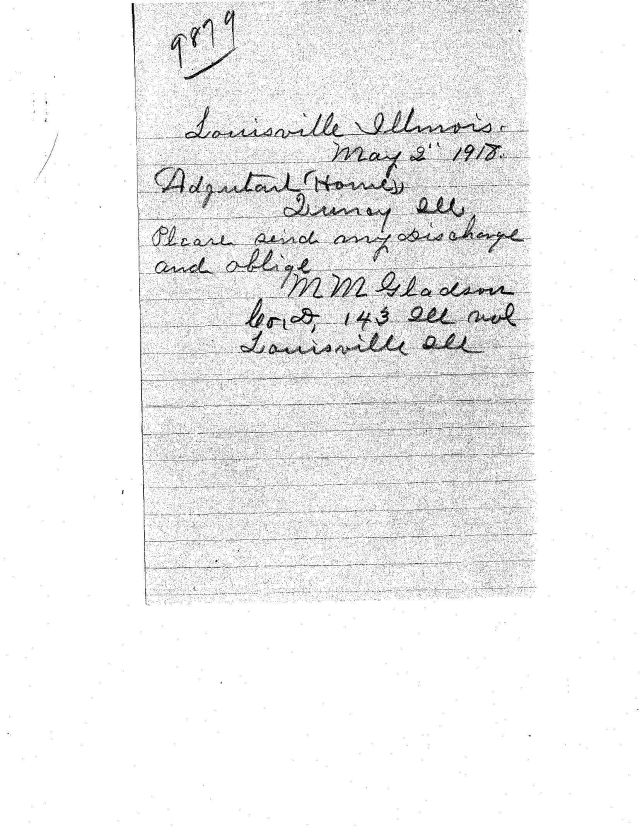 9879
Louisville Illinois.
May 2" 1918.
Adjutant Home,
Quincy Ill
Please send my Discharge
and oblige
M M Gladson
Co, D, 143 Ill vol
Louisville Ill